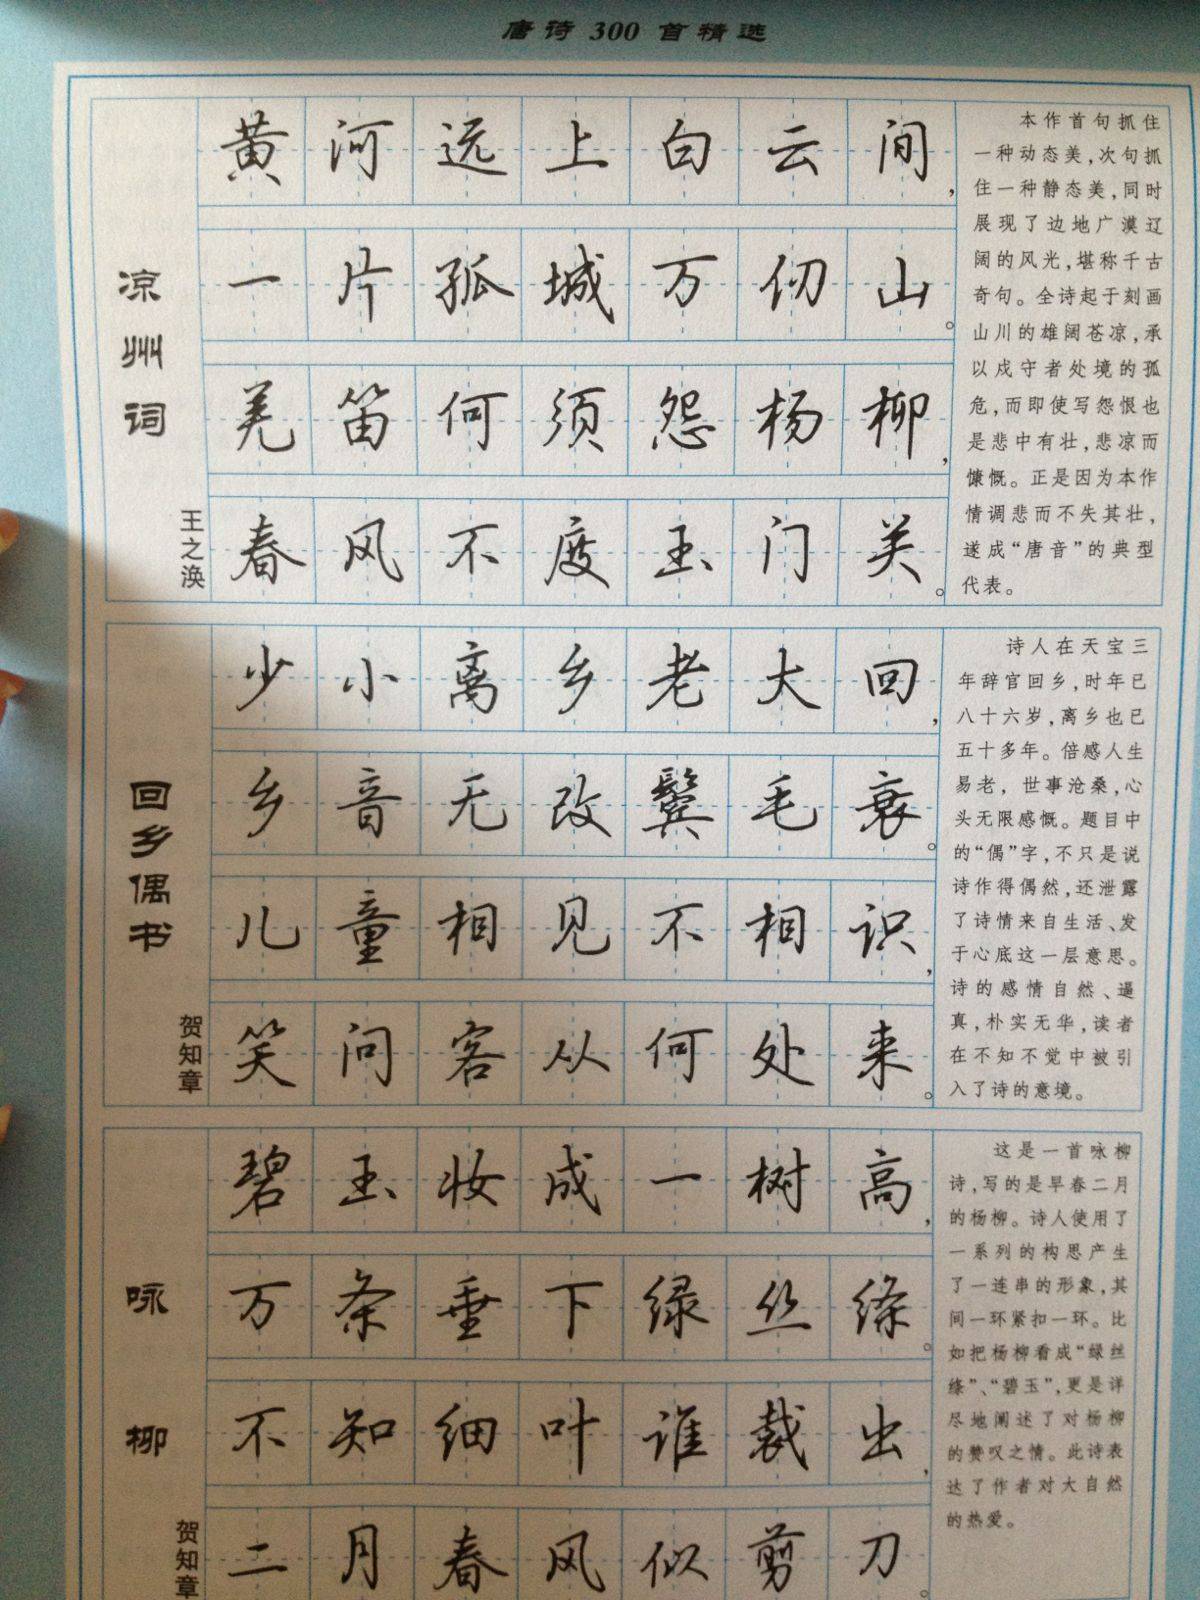 唐诗 300 首精选
凉州词
王之涣
黄河远上白云间，
一片孤城万仞山。
羌笛何须怨杨柳，
春风不度玉门关。
本作首句抓住
一种动态美，次句抓
住一种静态美，同时
展现了边地广漠辽
阔的风光，堪称千古
奇句。全诗起于刻画
山川的雄阔苍凉，承
以戍守者处境的孤
危，而即使写怨恨也
是悲中有壮，悲凉而
慷慨。正是因为本作
情调悲而不失其壮，
遂成“唐音”的典型
代表。
回乡偶书
贺知章
少小离乡老大回，
乡音无改鬓毛衰。
儿童相见不相识，
笑问客从何处来。
诗人在天宝三
年辞官回乡，时年已
八十六岁，离乡也已
五十多年。倍感人生
易老，世事沧桑，心
头无限感慨。题目中
的“偶”字，不只是说
诗作得偶然，还泄露
了诗情来自生活、发
于心底这一层意思。
诗的感情自然、逼
真，朴实无华，读者
在不知不觉中被引
入了诗的意境。
咏柳
贺知章
碧玉妆成一树高，
万条垂下绿丝绦。
不知细叶谁裁出，
二月春风似剪刀。
这是一首咏柳
诗，写的是早春二月
的杨柳。诗人使用了
一系列的构思产生
了一连串的形象，其
间一环紧扣一环。比
如把杨柳看成“绿丝
绦”、“碧玉”，更是详
尽地阐述了对杨柳
的赞叹之情。此诗表
达了作者对大自然
的热爱。